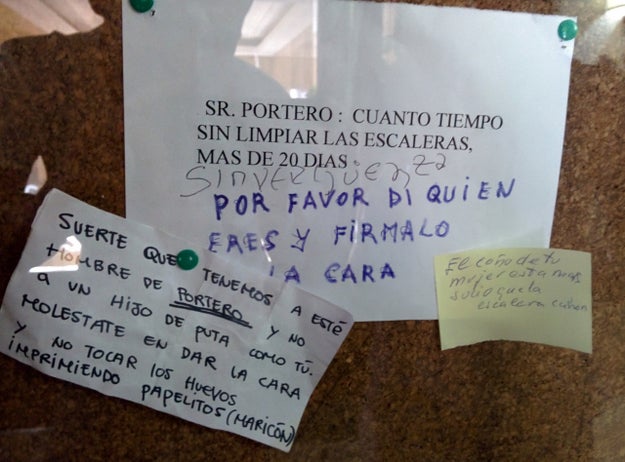 SR. PORTERO : CUANTO TIEMPO
SIN LIMPIAR LAS ESCALERAS,
MAS DE 20 DIAS
SINVERGÜENZA
POR FAVOR DI QUIEN
ERES Y FÍRMALO
LA CARA
SUERTE QUE TENEMOS A ESTE
HOMBRE DE PORTERO Y NO
A UN HIJO DE PUTA COMO TÚ.
MOLESTATE EN DAR LA CARA
Y NO TOCAR LOS HUEVOS
IMPRIMIENDO PAPELITOS (MARICÓN)
El coño de tu
mujer esta mas
sucio que la
escalera